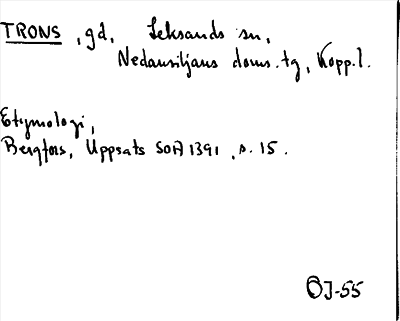 TRONS, gd, Leksands sn,
Nedansiljans doms.tg, Kopp.l.
Etymologi,
Bergfors, Uppsats SOA 1391, s. 15.
ÖJ-55